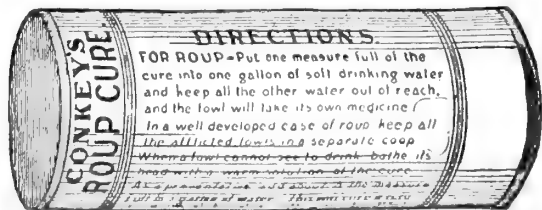 CONKEY'S
ROUP CURE.
DIRECTIONS.
FOR ROUP-Put one measure full of the
cure into one gallon of soft drinking water
and keep all the other water out of reach,
and the fowl will take its own medicine
In a well developed case of roup keep all
the afflicted fowls in a separate coop
When a fowl cannot see to drink bathe its
head with a warm solution of the cure
As a preventative add about ½ the measure
full to a gallon of water